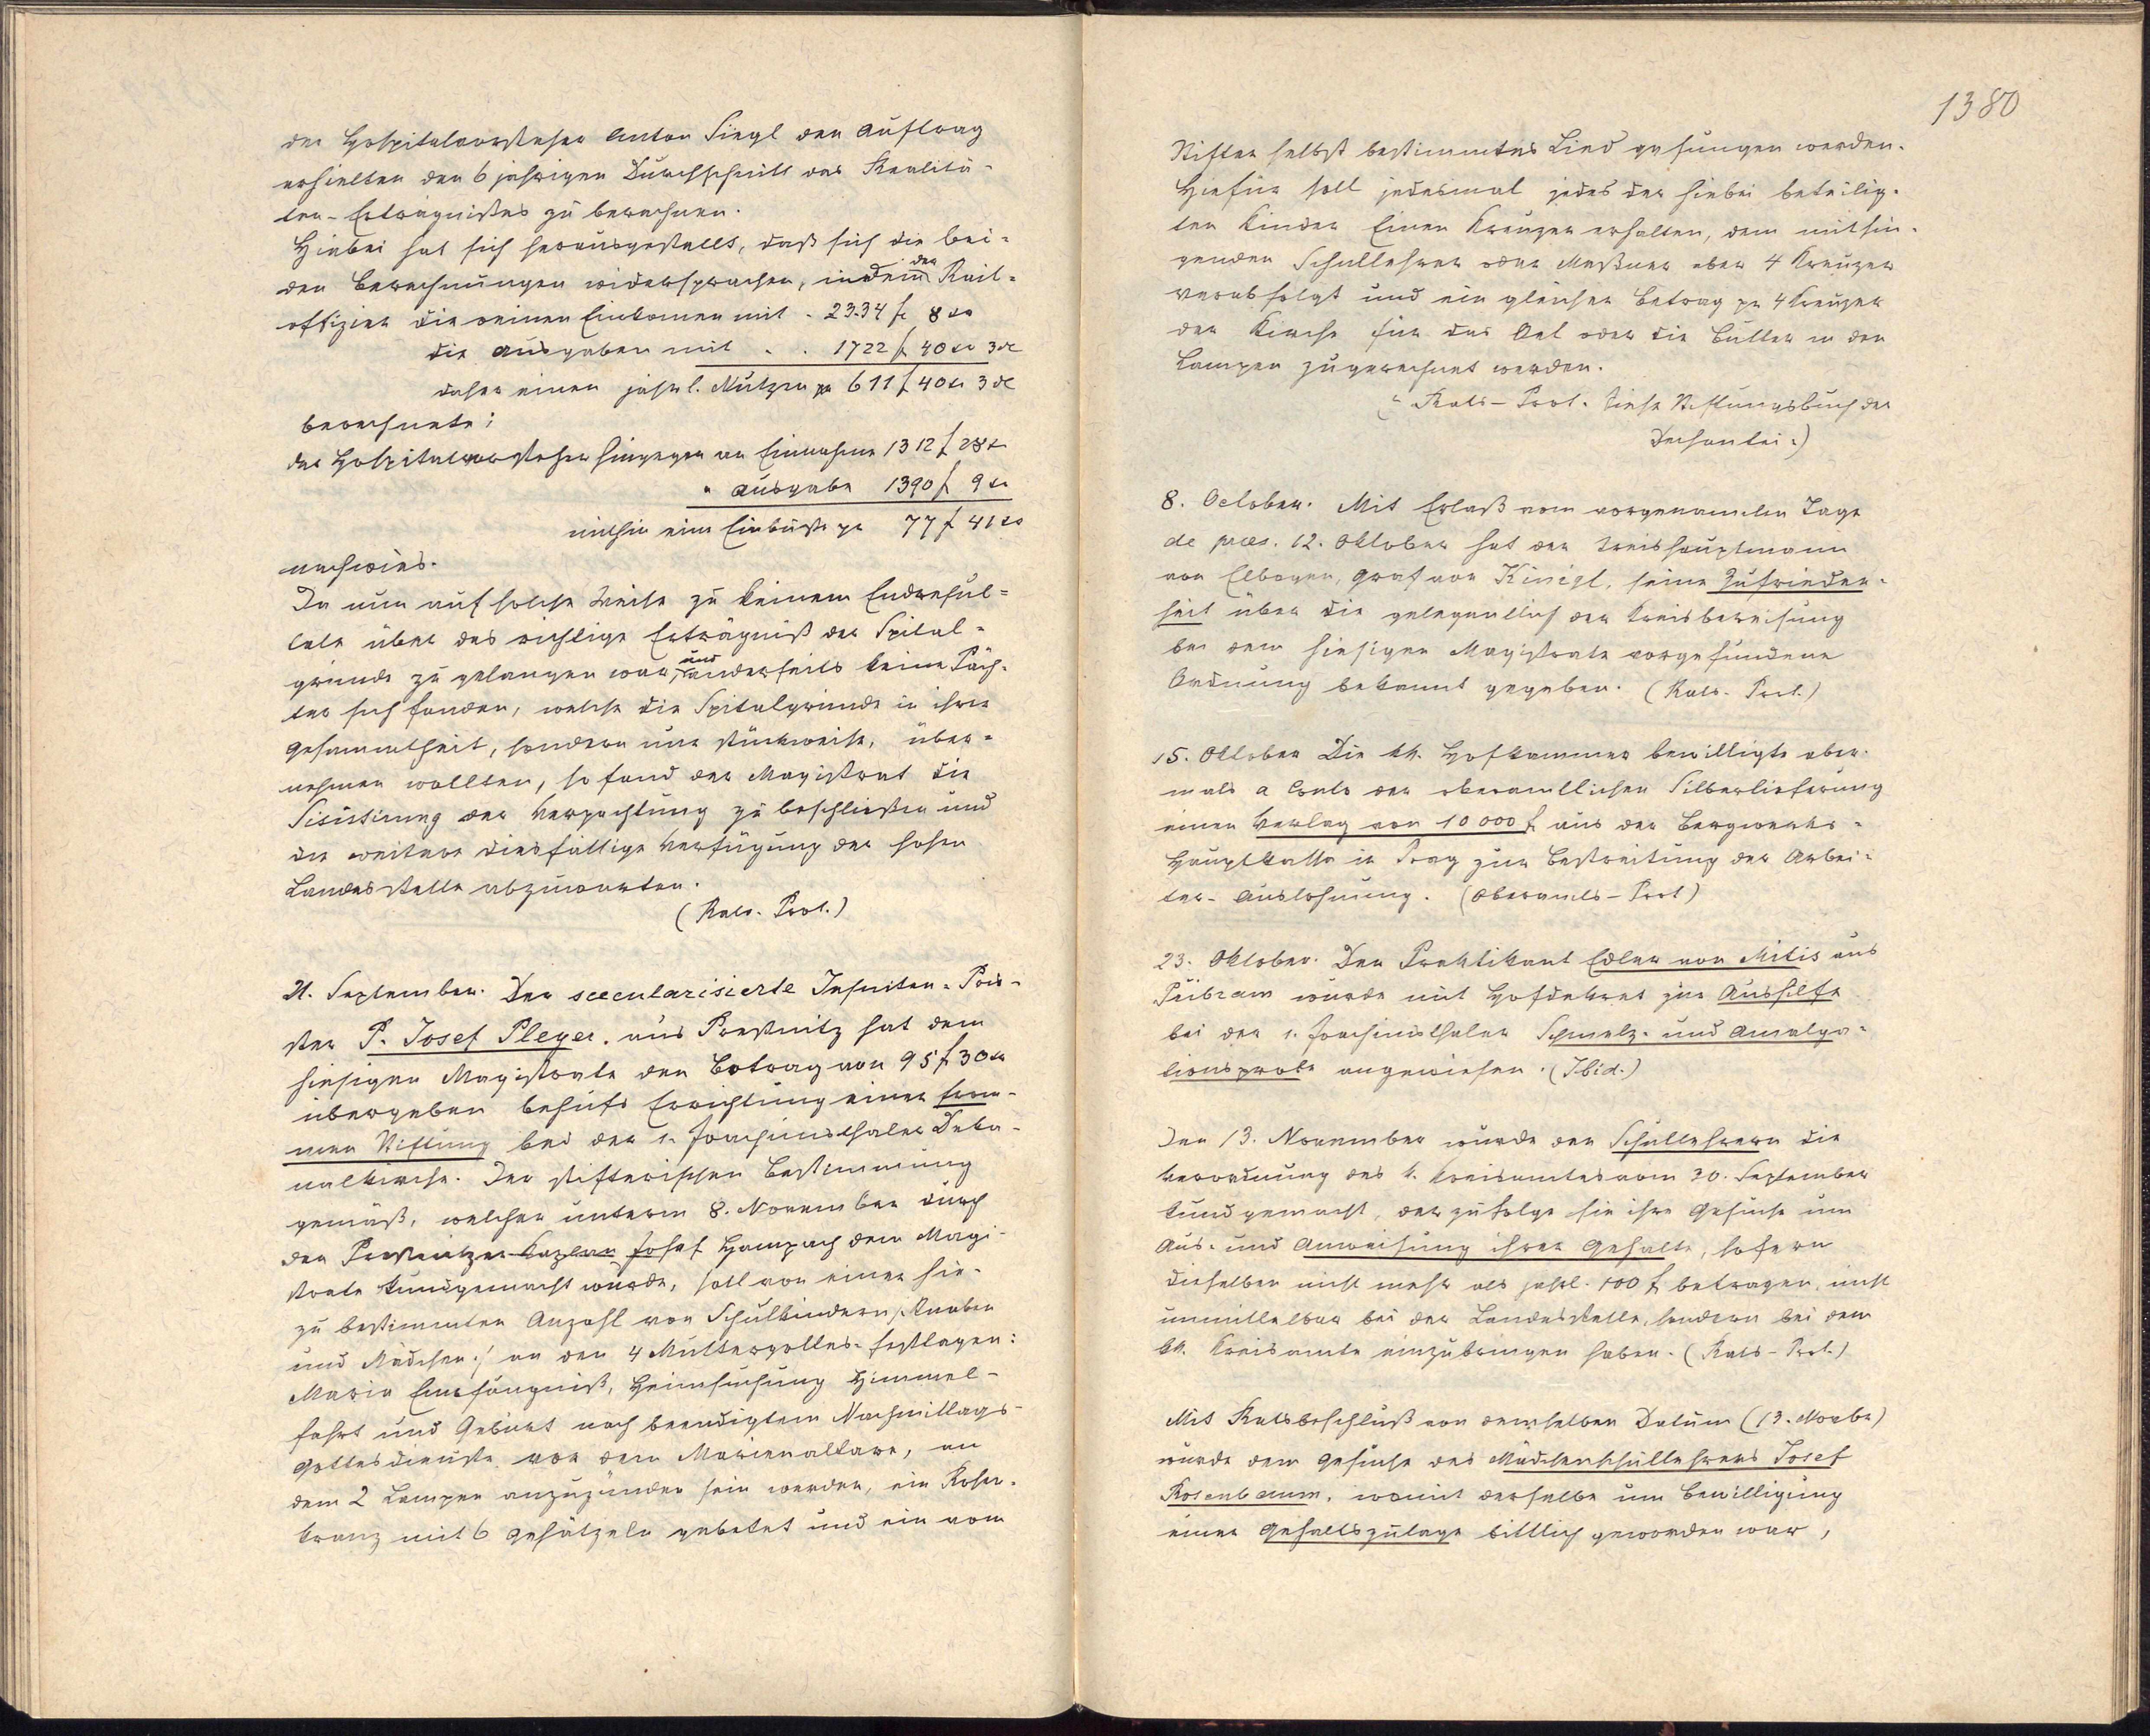 der Hospitalvorsteher Anton Siegl den Auftrag
erhielten den 6 jährigen Durchschnitt des Realitä-
ten-Erträgnißes zu berechnen.
Hiebei hat sich herausgestellt, daß sich die bei-
den Berechnungen widersprachen, indem der Rait-
offizier die reinen Einkomen mit . 2334 f 8 xr
die Ausgaben mit . . 1722 f 40 xr 3 d
daher einen jährl. Nutzen pr 611 f 40 xr 3 d
berechnete;
der Hospitalvorsteher hingegen an Einnahme 1312 f 28 xr
" Ausgabe 1390 f 9 xr
mithin eine Einbuße pr 77 f 41 xr
nachwies.
Da nun auf solche Weise zu keinem Endresul-
tate über das richtige Erträgniß der Spital-
gründe zu gelangen war, und anderseits keine Päch-
ter sich fanden, welche die Spitalgründe in ihrer
Gesammtheit, sondern nur stückweise, über-
nehmen wollten, so fand der Magistrat die
Sisistirung der Verpachtung zu beschließen und
die weitere diesfällige Verfügung der hohen
Landesstelle abzuwarten.
(Rats-Prot.)
21. September. Der saecularisierte Jesuiten-Prie-
ster P. Josef Pleyer, aus Preßnitz hat dem
hiesigen Magistrate den Betrag von 95 f 30 xr
übergeben behufs Errichtung einer from-
men Stiftung bei der s. Joachimsthaler Deka-
nalkirche. Der stifterischen Bestimmung
gemäß, welcher unterm 8. November durch
den Preßnitzer Kaplan Josef Hampach dem Magi-
strate kundgemacht wurde, soll von einer hie-
zu bestimmten Anzahl von Schulkindern /: Knaben
und Mädchen :/ an den 4 Muttergottes-Festtagen:
Maria Empfängniß, Heimsuchung Himmel-
fahrt und Geburt nach beendigtem Nachmittags-
gottesdienste vor dem Marienaltare, an
dem 2 Lampen anzuzünden sein werden, ein Rosen-
kranz mit 6 Gesätzeln gebetet und ein vom
1380
Stifter selbst bestimmtes Lied gesungen werden.
Hiefür soll jedesmal jedes der hiebei beteilig-
ten Kinder Einen Kreuzer erhalten, dem mitsin-
genden Schullehrer oder Meßner aber 4 Kreuzer
verabfolgt und ein gleicher Betrag pr 4 Kreuzer
der Kirche für das Oel oder die Butter in den
Lampen zugerechnet werden.
(Rats-Prot. Siehe Stiftungsbuch der
Dechantei.)
8. October. Mit Erlaß vom vorgenannten Tage
de praes. 12. Oktober hat der Kreishauptmann
von Elbogen, Graf von Kinigl, seine Zufrieden-
heit über die gelegentlich der Kreisbereisung
bei dem hiesigen Magistrate vorgefundene
Ordnung bekannt gegeben. (Rats-Prot.)
15. Oktober Die kk. Hofkammer bewilligte aber-
mals a Conto der oberamtlichen Silberlieferung
einen Verlag von 10000 f aus der Bergwerks-
Hauptkasse in Prag zur Bestreitung der Arbei-
ter-Auslohnung. (Oberamts-Prot)
23. Oktober. Der Praktikant Edler von Mitis aus
Přibram wurde mit Hofdekret zur Aushilfe
bei der s. Joachimsthaler Schmelz- und Amalga-
tionsprobe angewiesen. (Ibid.)
Den 13. November wurde den Schullehrern die
Verordnung des k. Kreisamtes vom 30. September
kundgemacht, derzufolge sie ihre Gesuche um
Aus- und Anweisung ihrer Gehalte, sofern
dieselben nicht mehr als jährl. 100 f betragen, nicht
unmittelbar bei der Landesstelle, sondern bei dem
kk. Kreisamte einzubringen haben. (Rats-Prot.)
Mit Ratsbeschluß von demselben Datum (13. Novbr)
wurde dem Gesuche des Mädchenschullehrers Josef
Rosenbaum, womit derselbe um Bewilligung
einer Gehaltszulage bittlich geworden war,